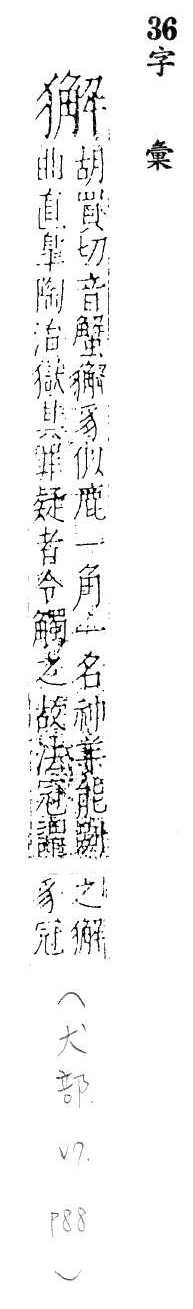 36 字彙
獬
胡買切音蟹獬豸似鹿一角一名神羊能斷
曲直皐陶治獄其罪疑者令觸之故法冠謂
之獬
豸冠
(犬部. V7. P88)